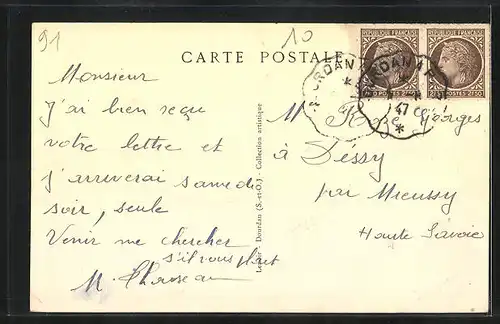 91
10
CARTE POSTALE
REPUBLIQUE FRANÇAISE
REPUBLIQUE FRANÇAISE
POSTES 2F50
POSTES 2F50
47
Monsieur
J'ai bien reçu
votre lettre et
J'arriverai samedi
soir, seule
Venir me chercher
s'il vous plait
M.
Dourdan (S.-et-O.) - Collection artistique
M Georges
à Dessy
par Mieussy
Haute Savoie